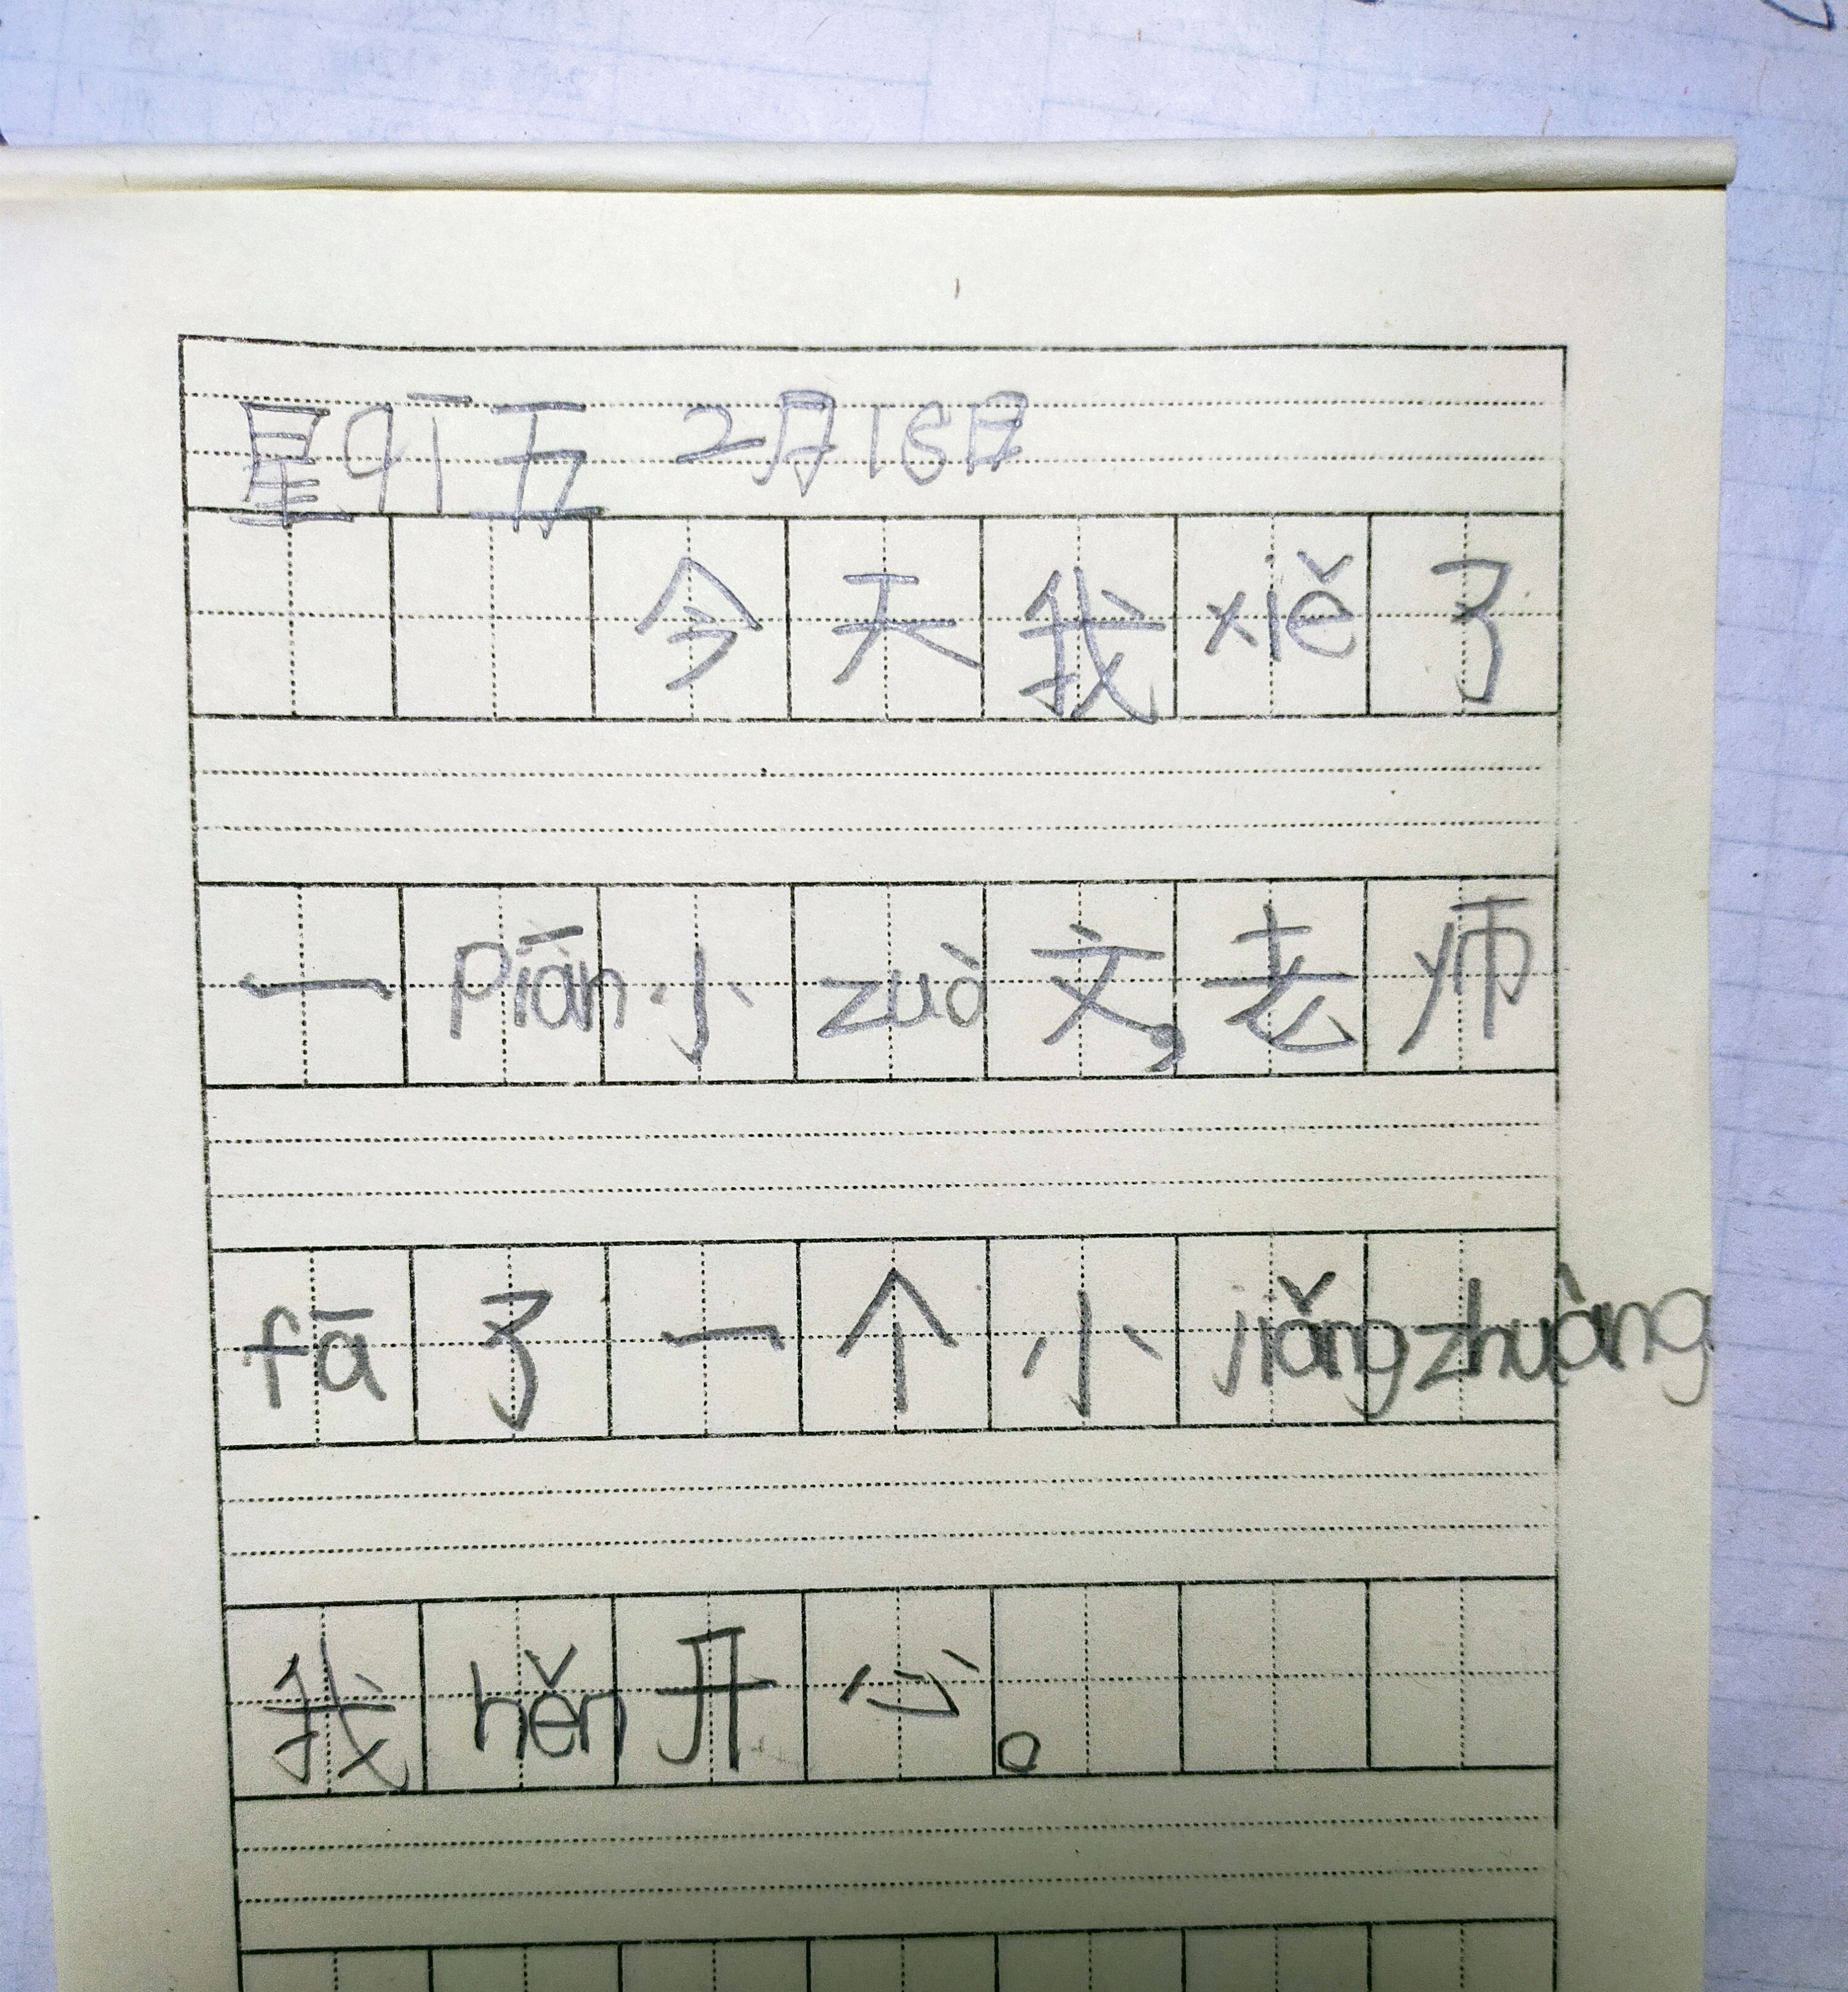 星qī五 2月18日
今天我xiě了
一Piān小zuò文，老师
fā了一个小jiǎngzhuàng
我hěn开心。